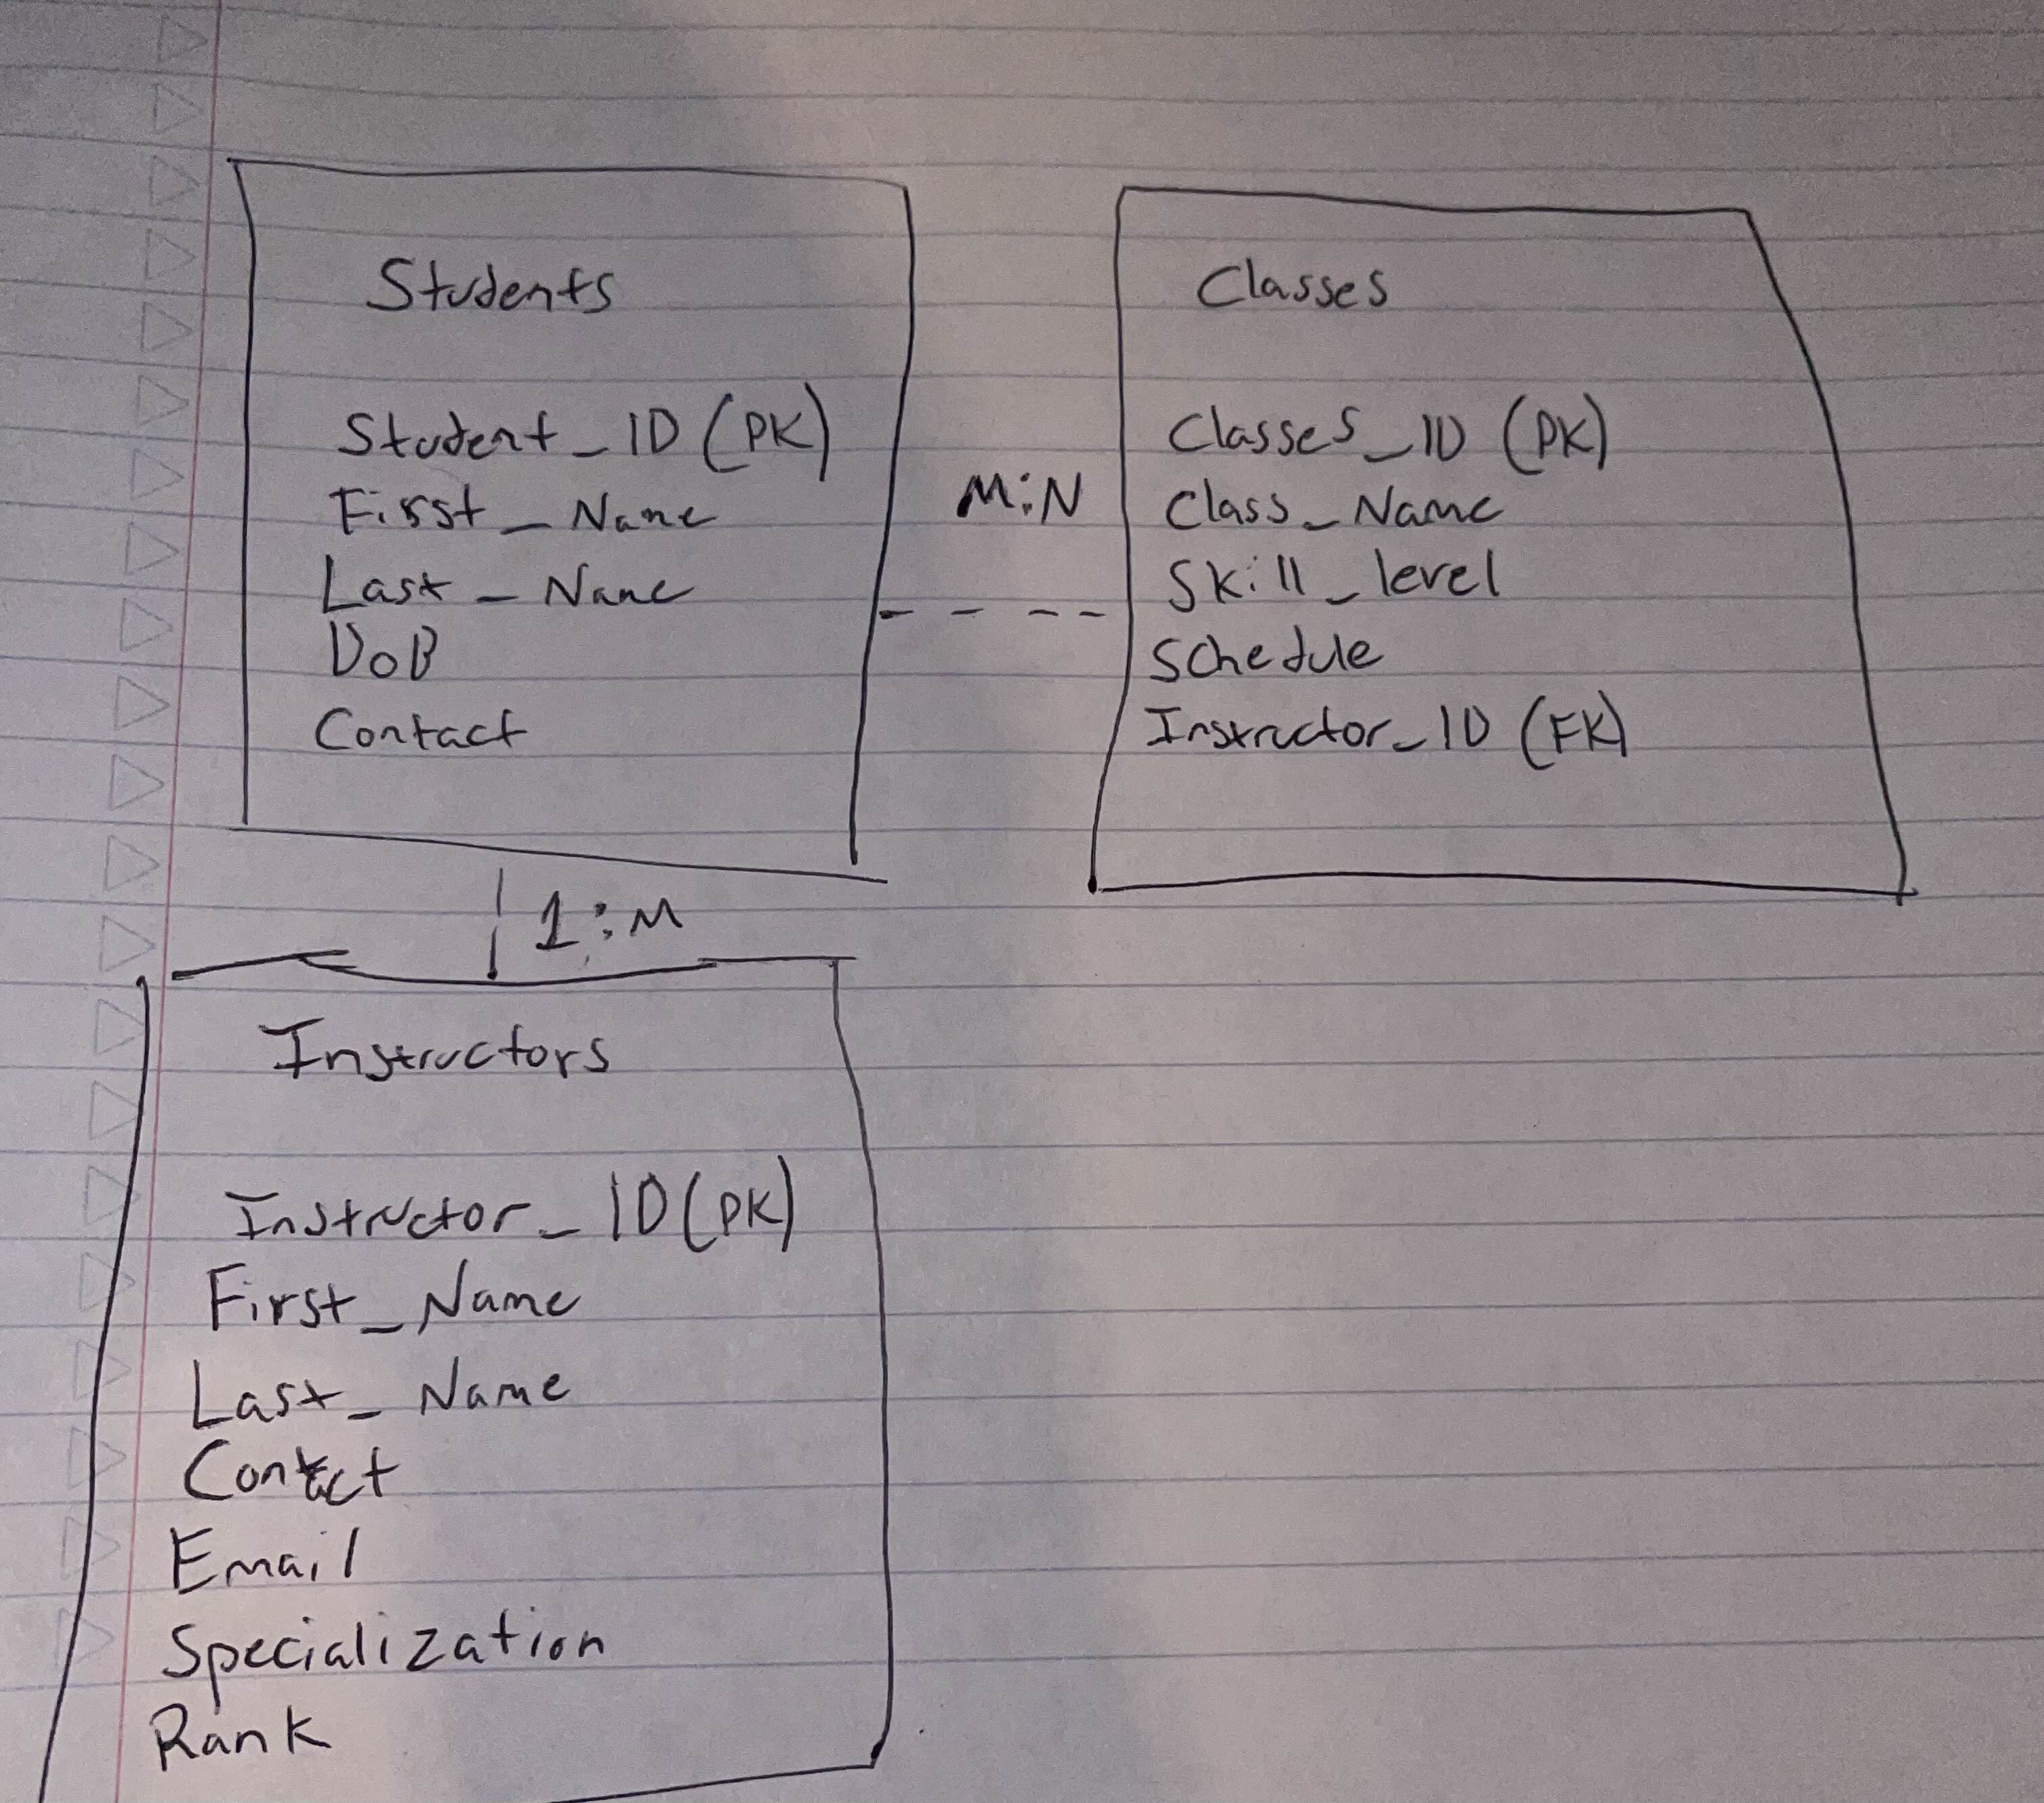 Students
Student_ID (PK)
First_Name
Last_Name
DoB
Contact
M:N
Classes
Classes_ID (PK)
Class_Name
Skill_level
Schedule
Instructor_ID (FK)
1:M
Instructors
Instructor_ID (PK)
First_Name
Last_Name
Contact
Email
Specialization
Rank